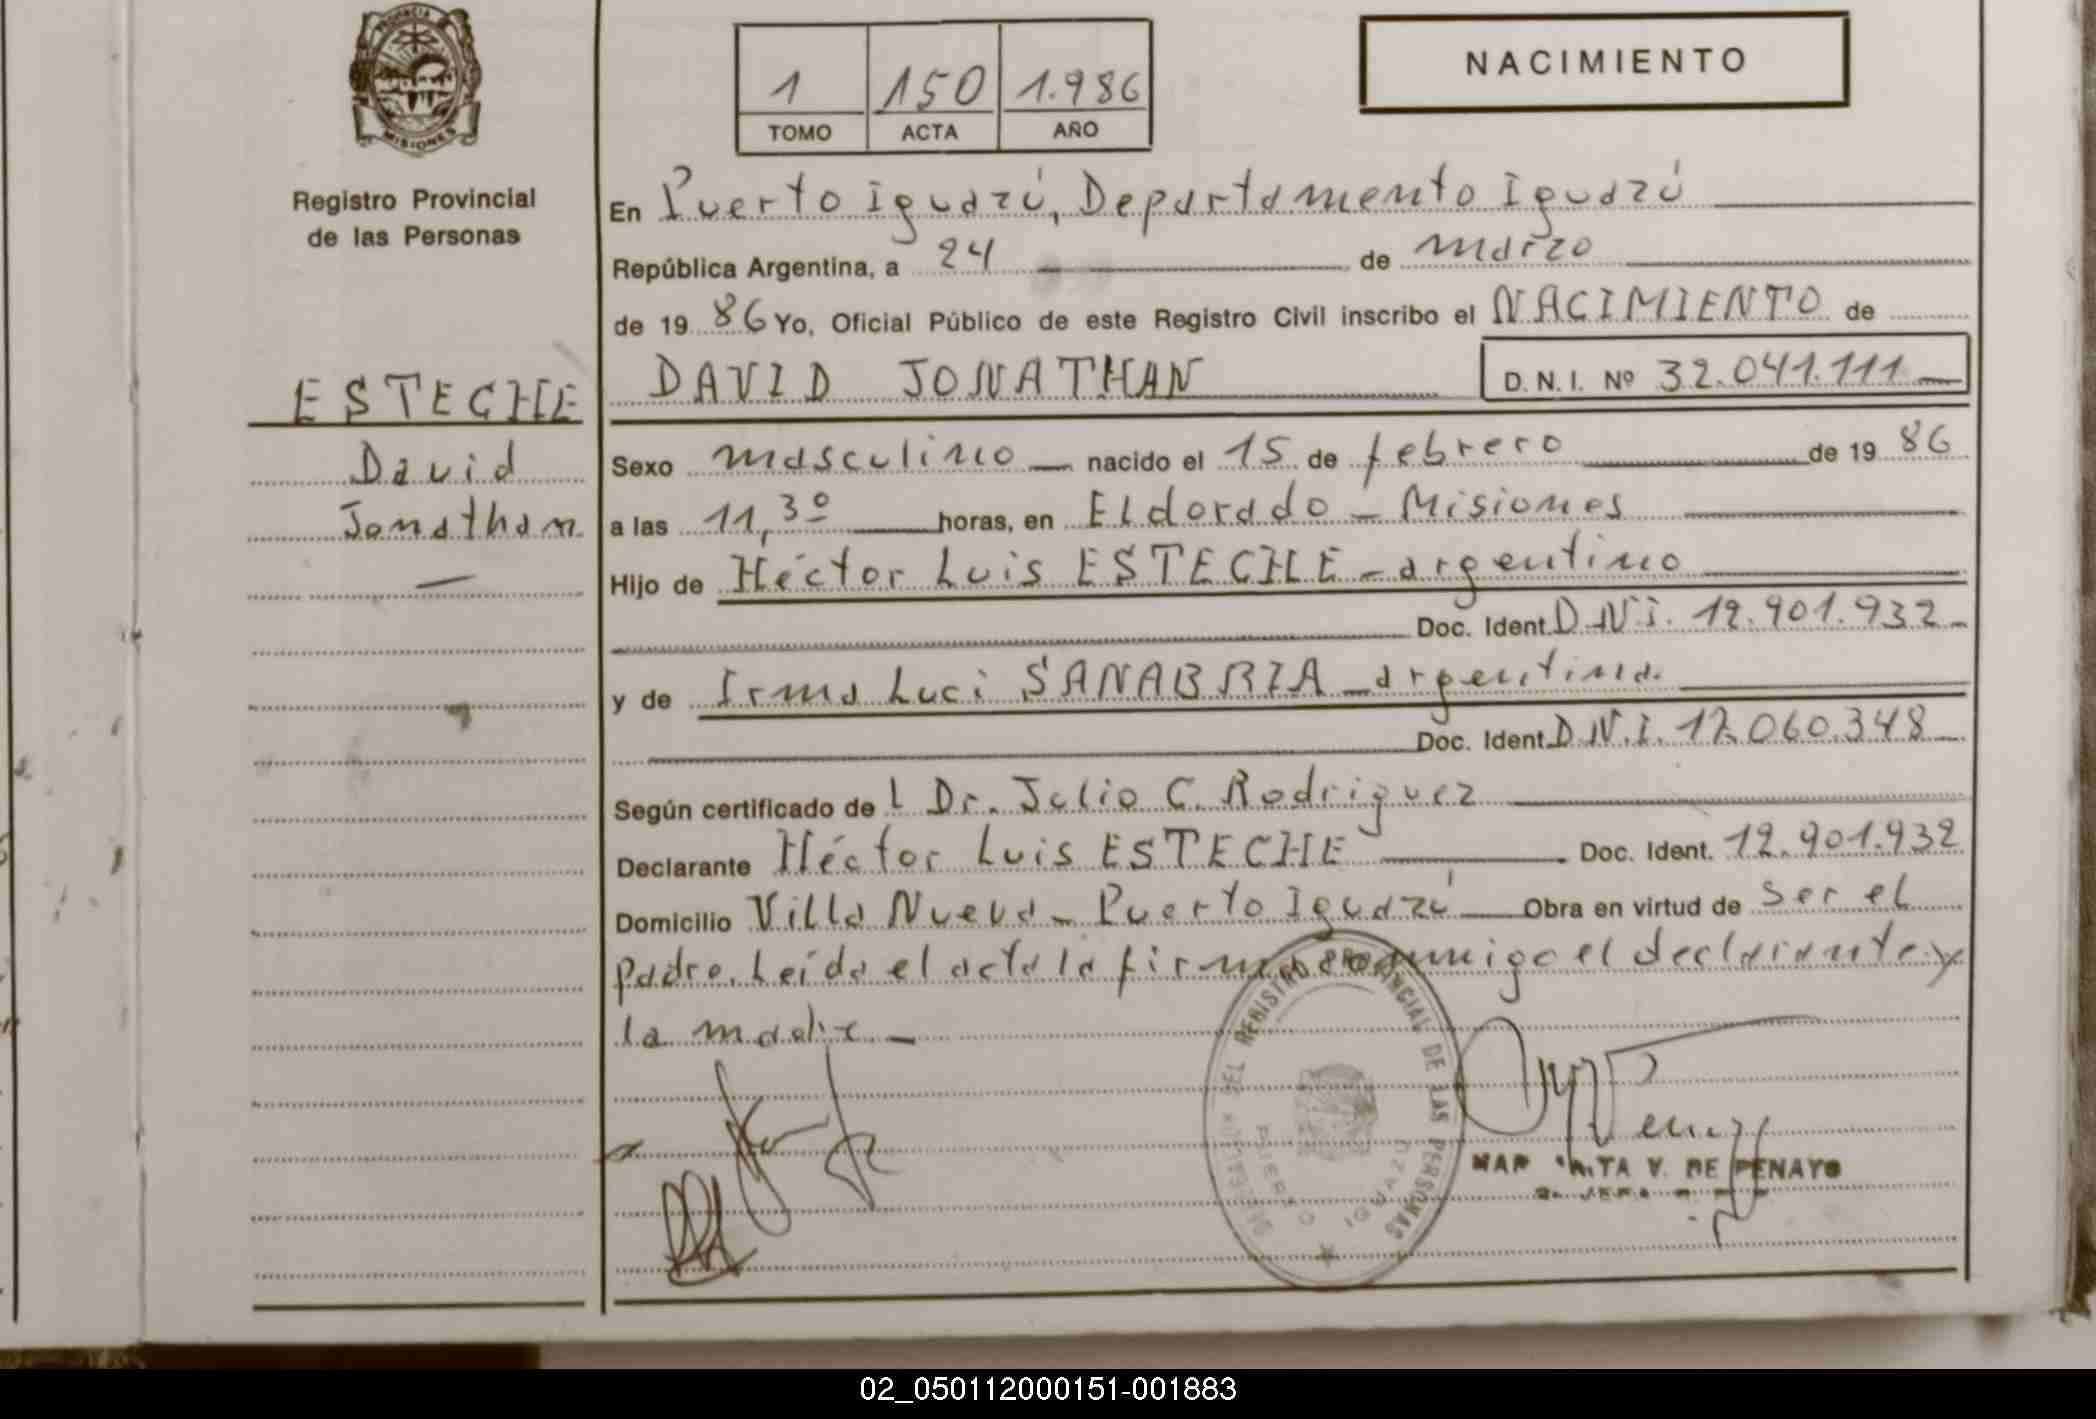 PROVINCIA DE
MISIONES
Registro Provincial
de las Personas
ESTECHE
David
Jonathan
1 150 1.986
TOMO ACTA AÑO
NACIMIENTO
En Puerto Iguazú, Departamento Iguazú
República Argentina, a 24 de marzo
de 19 86 Yo, Oficial Público de este Registro Civil inscribo el NACIMIENTO de
DAVID JONATHAN D.N.I. Nº 32.041.111
Sexo masculino nacido el 15 de febrero de 19 86
a las 11,30 horas, en Eldorado - Misiones
Hijo de Héctor Luis ESTECHE - argentino
Doc. Ident. D.N.I. 12.901.932
y de Irma Luci SANABRIA - argentina.
Doc. Ident. D.N.I. 17.060.348
Según certificado de l Dr. Julio C. Rodriguez
Declarante Héctor Luis ESTECHE Doc. Ident. 12.901.932
Domicilio Villa Nueva - Puerto Iguazú Obra en virtud de ser el
padre. Leída el acta la firma conmigo el declarante y
la madre.
DEL REGISTRO PROVINCIAL DE LAS PERSONAS
PUERTO IGUAZU
V. DE PENAYO
02_050112000151-001883